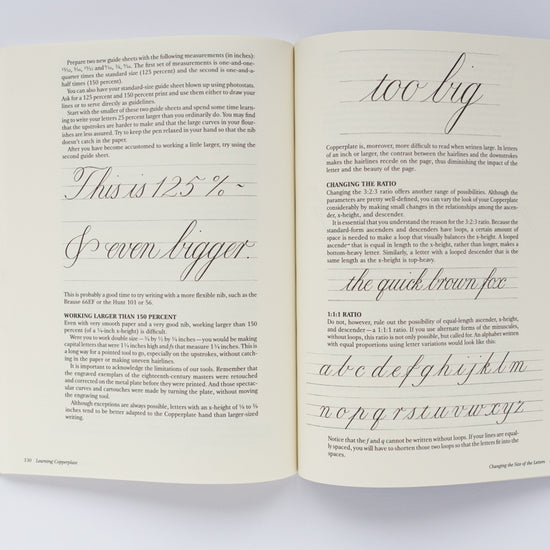 Prepare two new guide sheets with the following measurements (in inches):
and
. The first set of measurements is one-and-one-
quarter times the standard size (125 percent) and the second is one-and-a-
half times (150 percent).
You can also have your standard-size guide sheet blown up using photostats.
Ask for a 125 percent and 150 percent print and use them either to draw your
lines or to serve directly as guidelines.
Start with the smaller of these two guide sheets and spend some time learn-
ing to write your letters 25 percent larger than you ordinarily do. You may find
that the upstrokes are harder to make and that the large curves in your flour-
ishes are less assured. Try to keep the pen relaxed in your hand so that the nib
doesn't catch in the paper.
After you have become accustomed to working a little larger, try using the
second guide sheet.
This is 125 % ~
& even bigger.
This is probably a good time to try writing with a more flexible nib, such as the
Brause 66EF or the Hunt 101 or 56.
WORKING LARGER THAN 150 PERCENT
Even with very smooth paper and a very good nib, working larger than 150
percent (of a ¼-inch x-height) is difficult.
Were you to work double size — ¾ by ½ by ¾ inches — you would be making
capital letters that were 1¼ inches high and fs that measure 1¾ inches. This is
a long way for a pointed tool to go, especially on the upstrokes, without catch-
ing in the paper or making uneven hairlines.
It is important to acknowledge the limitations of our tools. Remember that
the engraved exemplars of the eighteenth-century masters were touched
and corrected on the metal plate before they were printed. And those spectac-
ular curves and cartouches were made by turning the plate, without moving
the engraving tool.
Although exceptions are always possible, letters with an x-height of ¼ to ⅜
inches tend to be better adapted to the Copperplate hand than larger-sized
writing.
130 Learning Copperplate
too big
Copperplate is, moreover, more difficult to read when written large. In letters
of an inch or larger, the contrast between the hairlines and the downstrokes
makes the hairlines recede on the page, thus diminishing the impact of the
letter and the beauty of the page.
CHANGING THE RATIO
Changing the 3:2:3 ratio offers another range of possibilities. Although the
parameters are pretty well-defined, you can vary the look of your Copperplate
considerably by making small changes in the relationships among the ascen-
der, x-height, and descender.
It is essential that you understand the reason for the 3:2:3 ratio. Because the
standard-form ascenders and descenders have loops, a certain amount of
space is needed to make a loop that visually balances the x-height. A looped
ascender that is equal in length to the x-height, rather than longer, makes a
bottom-heavy letter. Similarly, a letter with a looped descender that is the
same length as the x-height is top-heavy.
the quick brown fox
1:1:1 RATIO
Do not, however, rule out the possibility of equal-length ascender, x-height,
and descender — a 1:1:1 ratio. If you use alternate forms of the minuscules,
without loops, this ratio is not only possible, but called for. An alphabet written
with equal proportions using letter variations would look like this:
a b c d e f g h i j k l m
n o p q r s t u v w x y z
Notice that the f and q cannot be written without loops. If your lines are equal-
ly spaced, you will have to shorten those two loops so that the letters fit into the
spaces.
Changing the Size of the Letters